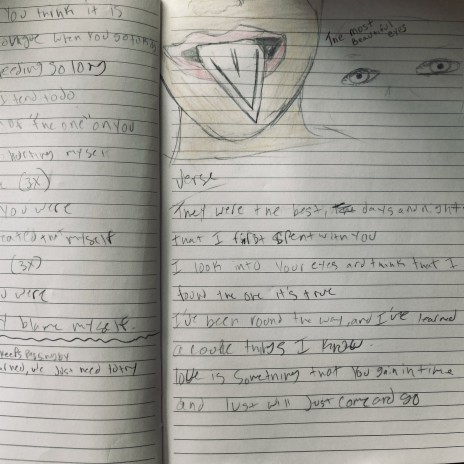 You think it is
when you
so long
I tend to do
"the one" on you
hurting myself
(3X)
You were
myself
(3X)
were
blame myself.
passing by
we just need to try
The most
beautiful
eyes
Verse
They were the best, days and night
that I first spent with you
I look into your eyes and think that I
found the one it's true
I've been round the way, and I've learned
a couple things I know.
love is something that you gain in time
and lust will just come and go